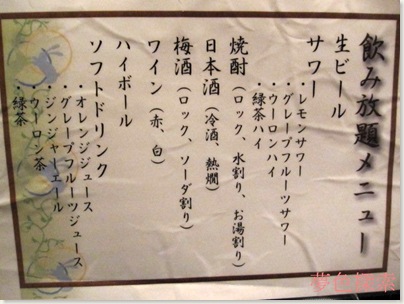 飲み放題メニュー
生ビール
サワー
・レモンサワー
・グレープフルーツサワー
・ウーロンハイ
・緑茶ハイ
焼酎（ロック、水割り、お湯割り）
日本酒（冷酒、熱燗）
梅酒（ロック、ソーダ割り）
ワイン（赤、白）
ハイボール
ソフトドリンク
・オレンジジュース
・グレープフルーツジュース
・ジンジャーエール
・ウーロン茶
・緑茶